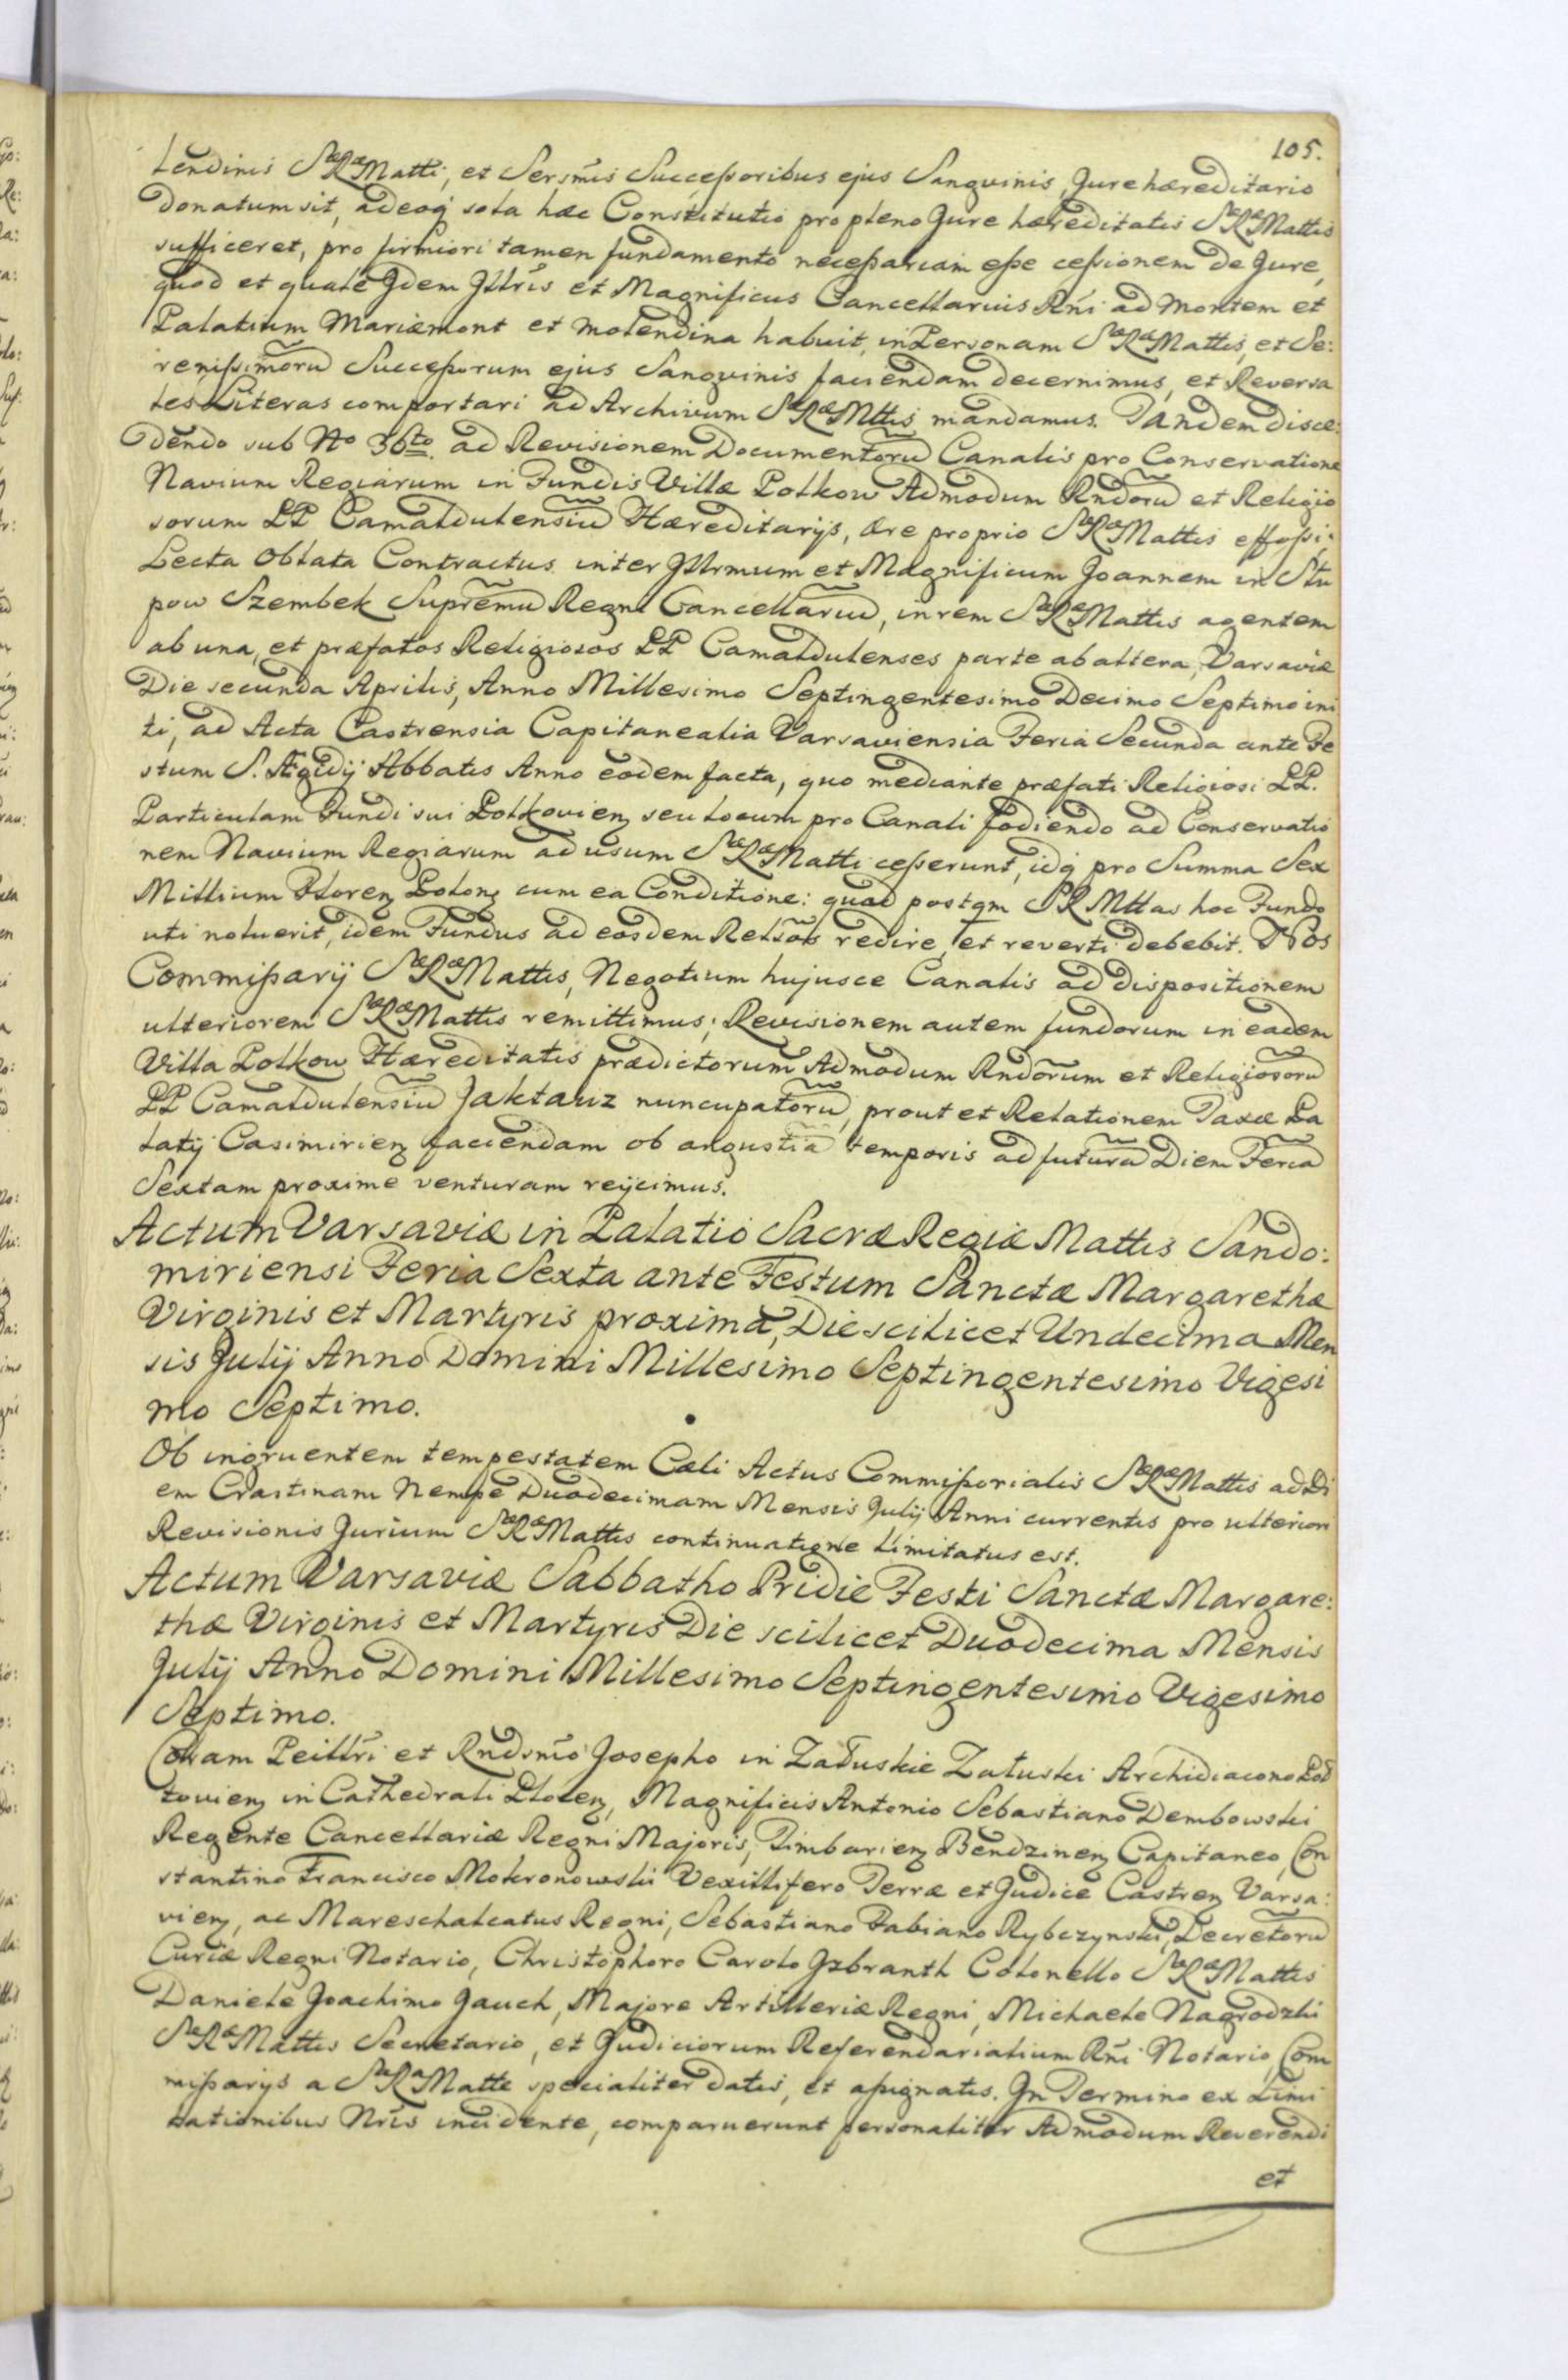 105.
lendinis SæRæMatti, et Sersm̃is Succeſsoribus ejus Sanguinis, Jure hæreditario
donatum sit, adeoq́ sola hæc Constitutio pro pleno Jure hæreditatis SæRæMattis
sufficeret, pro firmiori tamen fundamento neceſsariam eſse ceſsionem de Jure,
quod et quale Idem Illr̃is et Magnificus Cancellarius Rñi ad Montem et
Palatium Mariæmont et molendina habuit, in Personam SæRæMattis, et Se:
reniſsimorũ Succeſsorum ejus Sanguinis faciendam decernimus, et Reversa
les Literas comportari ad Archivum SæRæMttis mandamus. Tandem disce:
dendo sub No 36to. ad Revisionem Documentorũ Canalis pro Conservatione
Navium Regiarum in Fundis Villæ Polkow Admodum Rndorũ et Religio
sorum PP Camaldulensiũ Hæreditarijs, ære proprio SæRæMattis effoſsi;
Lecta Oblata Contractus inter Illrmum et Magnificum Joannem in Slu
pow Szembek Supremũ Regni Cancellariũ, in rem SæRæMattis agentem
ab una, et præfatos Religiosos PP Camaldulenses parte ab altera, Varsaviæ
Die secunda Aprilis, Anno Millesimo Septingentesimo Decimo Septimo ini
ti, ad Acta Castrensia Capitanealia Varsaviensia Feria Secunda ante Fe
stum S. Ægidij Abbatis Anno eodem facta, quo mediante præfati Religiosi PP.
Particulam Fundi sui Polkovien̨ seu locum pro Canali fodiendo ad Conservatio
nem Navium Regiarum ad usum SæRæMatti ceſserunt, idq́ pro Summa Sex
Millium Floren̨ Polon̨ cum ea Conditione: quod postqm SR Mttas hoc Fundo
uti noluerit, idem Fundus ad eosdem Relg̃os redire, et reverti debebit. Nos
Commiſsarij SæRæMattis, Negotium hujusce Canalis ad dispositionem
ulteriorem SæRæMattis remittimus; Revisionem autem fundorum in eadem
Villa Polkow Hæreditatis prædictorum Admodum Rndorum et Religiosorũ
PP Camaldulensiũ Jaktariz nuncupatorũ, prout et Relationem Taxæ Pa
latij Casimirien̨ faciendam ob angustiã temporis ad futurã Diem Feriã
Sextam proxime venturam reijcimus.
Actum Varsaviæ in Palatio Sacræ Regiæ Mattis Sando:
miriensi Feria Sexta ante Festum Sanctæ Margarethæ
Virginis et Martyris proxima, Die scilicet Undecima Men
sis Julij Anno Domini Millesimo Septingentesimo Vigesi
mo Septimo.
Ob ingruentem tempestatem Cæli Actus Commiſsorialis SæRæMattis ad Di
em Crastinam Nempe Duodecimam Mensis Julij Anni currentis pro ulteriori
Revisionis Jurium SæRæMattis continuatione limitatus est.
Actum Varsaviæ Sabbatho Pridie Festi Sanctæ Margare:
thæ Virginis et Martyris Die scilicet Duodecima Mensis
Julij Anno Domini Millesimo Septingentesimo Vigesimo
Septimo.
Coram Peillr̃i et Rndsm̃o Josepho in Załuskie Załuski Archidiacono Pod
tovien̨ in Cathedrali Plocen̨, Magnificis Antonio Sebastiano Dembowski
Regente Cancellariæ Regni Majoris, Timbarien̨ Bendzinen̨ Capitaneo, Con
stantino Francisco Mokronowski Vexillifero Terræ et Judice Castren̨ Varsa:
vien̨, ac Mareschalcatus Regni, Sebastiano Fabiano Rybczynski, Decretorũ
Curiæ Regni Notario, Christophoro Carolo Izbranth Colonello SæRæMattis
Daniele Joachimo Jauch, Majore Artilleriæ Regni, Michaele Nagrodzki
SæRæMattis Secretario, et Judiciorum Referendarialium Rñi Notario, Com
miſsarijs a SaRaMatte specialiter datis, et aſsignatis. In Termino ex Limi
tationibus Nr̃is incidente, comparuerunt personaliter Admodum Reverendi
et